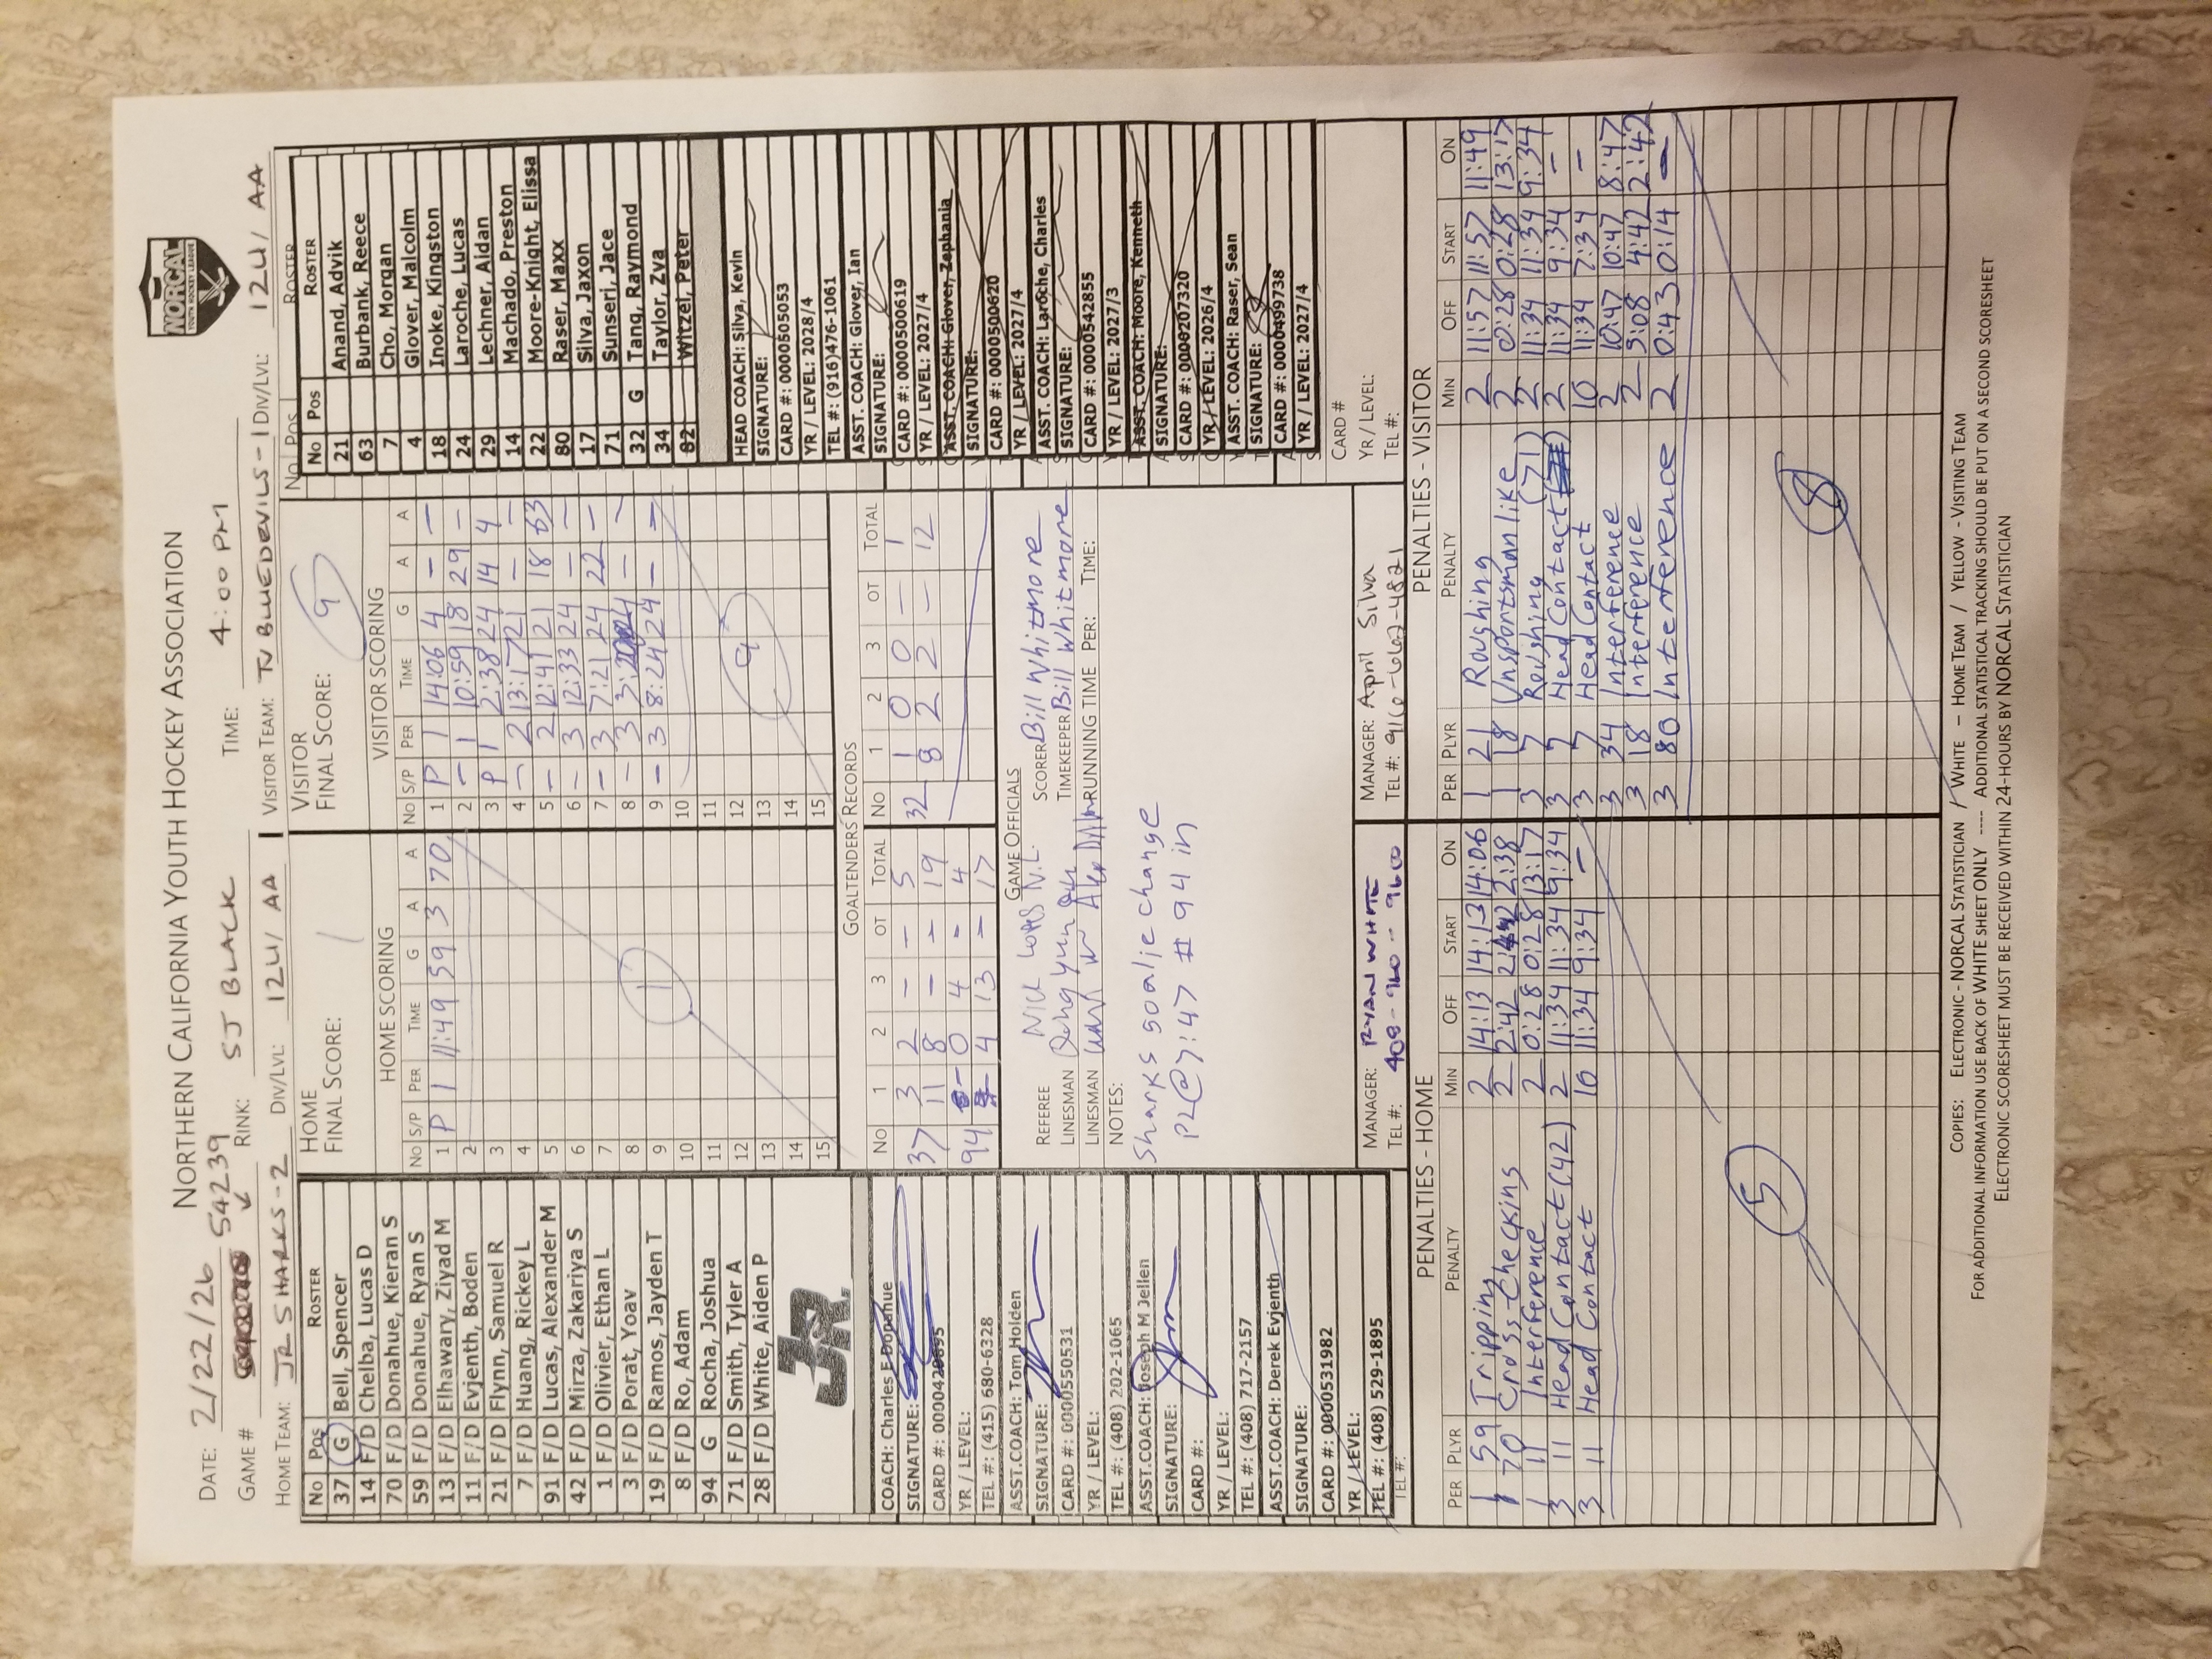 NORCAL
YOUTH HOCKEY LEAGUE
NORTHERN CALIFORNIA YOUTH HOCKEY ASSOCIATION
DATE: 2/22/26
GAME # 54239 RINK: SJ BLACK TIME: 4:00 PM
HOME TEAM: JR SHARKS-2 DIV/LVL: 12U/AA VISITOR TEAM: TV BLUEDEVILS-1 DIV/LVL: 12U/AA
No Pos ROSTER
37 G Bell, Spencer
14 F/D Chelba, Lucas D
70 F/D Donahue, Kieran S
59 F/D Donahue, Ryan S
13 F/D Elhawary, Ziyad M
11 F/D Evjenth, Boden
21 F/D Flynn, Samuel R
7 F/D Huang, Rickey L
91 F/D Lucas, Alexander M
42 F/D Mirza, Zakariya S
1 F/D Olivier, Ethan L
3 F/D Porat, Yoav
19 F/D Ramos, Jayden T
8 F/D Ro, Adam
94 G Rocha, Joshua
71 F/D Smith, Tyler A
28 F/D White, Aiden P
JR.
COACH: Charles E Donahue
SIGNATURE:
CARD #:
YR / LEVEL:
TEL #: (415) 680-6328
ASST.COACH: Tom Holden
SIGNATURE:
CARD #: 0000550531
YR / LEVEL:
TEL #: (408) 202-1065
ASST.COACH: Joseph M Jellen
SIGNATURE:
CARD #:
YR / LEVEL:
TEL #: (408) 717-2157
ASST.COACH: Derek Evjenth
SIGNATURE:
CARD #: 0000531982
YR / LEVEL:
TEL #: (408) 529-1895
TEL #:
HOME
FINAL SCORE: 1
HOME SCORING
No S/P PER TIME G A A
1 P 1 11:49 59 3 70
2
3
4
5
6
7
8
9
10
11
12
13
14
15
1
VISITOR
FINAL SCORE: 9
VISITOR SCORING
No S/P PER TIME G A A
1 P 1 14:06 4 - -
2 - 1 10:59 18 29 -
3 P 1 2:38 24 14 4
4 - 2 13:17 21 - -
5 - 2 12:41 21 18 63
6 - 3 12:33 24 - -
7 - 3 7:21 24 22 -
8 - 3 - -
9 - 3 8:24 24 - -
10
11
12
13
14
15
9
GOALTENDERS RECORDS
No 1 2 3 OT TOTAL
37 3 2 - - 5
11 8 - - 19
94 - 0 4 - 4
4 13 - 17
No 1 2 3 OT TOTAL
32 1 0 0 - 1
8 2 2 - 12
GAME OFFICIALS
REFEREE Nick Lopes N.L.
LINESMAN
LINESMAN
SCORER Bill Whitmore
TIMEKEEPER Bill Whitmore
RUNNING TIME PER: TIME:
NOTES:
Sharks goalie change
P2@7:47 #94 in
MANAGER: RYAN WHITE
TEL #: 408-960-9600
MANAGER: April Silva
TEL #: 916-662-4821
No Pos ROSTER
No Pos ROSTER
21 Anand, Advik
63 Burbank, Reece
7 Cho, Morgan
4 Glover, Malcolm
18 Inoke, Kingston
24 Laroche, Lucas
29 Lechner, Aidan
14 Machado, Preston
22 Moore-Knight, Elissa
80 Raser, Maxx
17 Silva, Jaxon
71 Sunseri, Jace
32 G Tang, Raymond
34 Taylor, Zva
82 Witzel, Peter
HEAD COACH: Silva, Kevin
SIGNATURE:
CARD #: 00005505053
YR / LEVEL: 2028/4
TEL #: (916)476-1061
ASST. COACH: Glover, Ian
SIGNATURE:
CARD #: 00005500619
YR / LEVEL: 2027/4
ASST. COACH: Glover, Zephania
SIGNATURE:
CARD #: 00005500620
YR / LEVEL: 2027/4
ASST. COACH: Laroche, Charles
SIGNATURE:
CARD #: 00000542855
YR / LEVEL: 2027/3
ASST. COACH: Moore, Kenneth
SIGNATURE:
CARD #: 00006207320
YR / LEVEL: 2026/4
ASST. COACH: Raser, Sean
SIGNATURE:
CARD #: 00000499738
YR / LEVEL: 2027/4
CARD #
YR / LEVEL:
TEL #:
PENALTIES - HOME
PER PLYR PENALTY MIN OFF START ON
1 59 Tripping 2 14:13 14:13 14:06
1 70 Cross-Checking 2 2:42 2:42 2:38
1 11 Interference 2 0:28 0:28 13:17
3 11 Head Contact (42) 2 11:34 11:34 9:34
3 11 Head Contact 10 11:34 9:34 -
5
PENALTIES - VISITOR
PER PLYR PENALTY MIN OFF START ON
1 21 Roughing 2 11:57 11:57 11:49
1 18 Unsportsmanlike 2 0:28 0:28 13:17
3 7 Roughing (71) 2 11:34 11:34 9:34
3 7 Head Contact 2 11:34 9:34 -
3 7 Head Contact 10 11:34 7:34 -
3 34 Interference 2 10:47 10:47 8:47
3 18 Interference 2 5:08 4:42 2:42
3 80 Interference 2 0:43 0:14 -
8
COPIES: ELECTRONIC - NORCAL STATISTICIAN / WHITE - HOME TEAM / YELLOW - VISITING TEAM
FOR ADDITIONAL INFORMATION USE BACK OF WHITE SHEET ONLY ---- ADDITIONAL STATISTICAL TRACKING SHOULD BE PUT ON A SECOND SCORESHEET
ELECTRONIC SCORESHEET MUST BE RECEIVED WITHIN 24-HOURS BY NORCAL STATISTICIAN